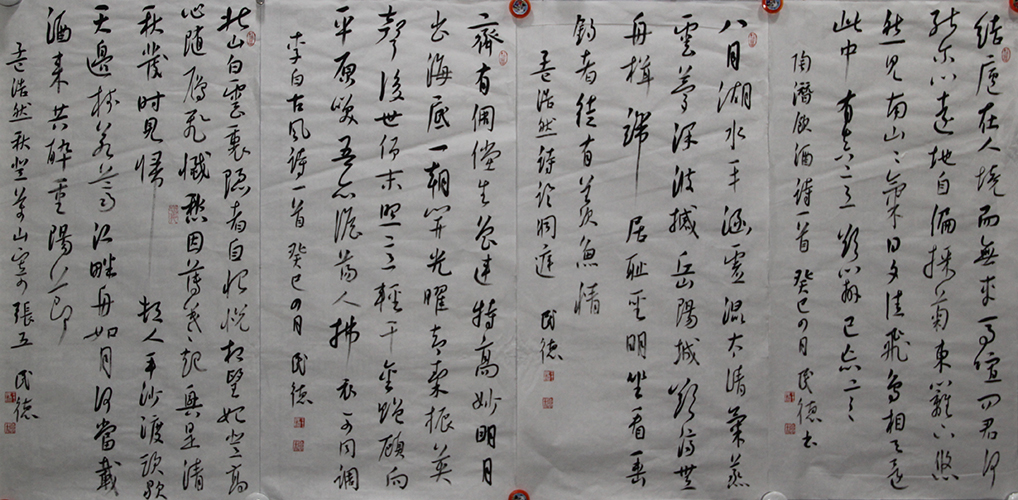 结廬在人境而無車马喧问君何
能尔心遠地自偏採菊東籬下悠
然見南山山氣日夕佳飛鸟相與還
此中有真意欲辨已忘言
陶潜饮酒诗一首 癸巳四月 民德书
八月湖水平涵虚混太清氣蒸
雲夢澤波撼岳陽城欲濟無
舟楫端居耻聖明坐看垂
釣者徒有羡魚情
孟浩然诗临洞庭 民德
齊有倜儻生魯連特高妙明月
出海底一朝開光曜却秦振英
聲後世仰末照意輕千金贈顧向
平原笑吾亦澹蕩人拂衣可同調
李白古風詩一首 癸巳四月 民德
北山白雲裏隐者自怡悦相望始登高
心随雁飛滅愁因薄暮起興是清
秋發時見歸村人平沙渡頭歇
天邊樹若薺江畔舟如月何當載
酒来共醉重陽節
孟浩然秋登萬山寄張五 民德